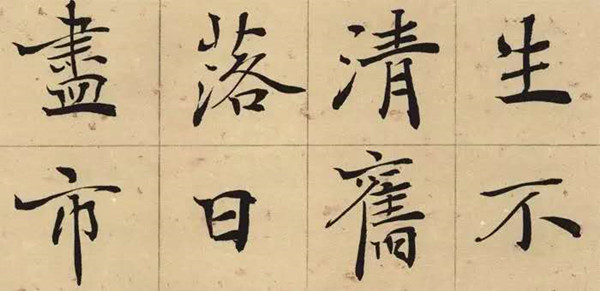 生不
清舊
落日
盡市